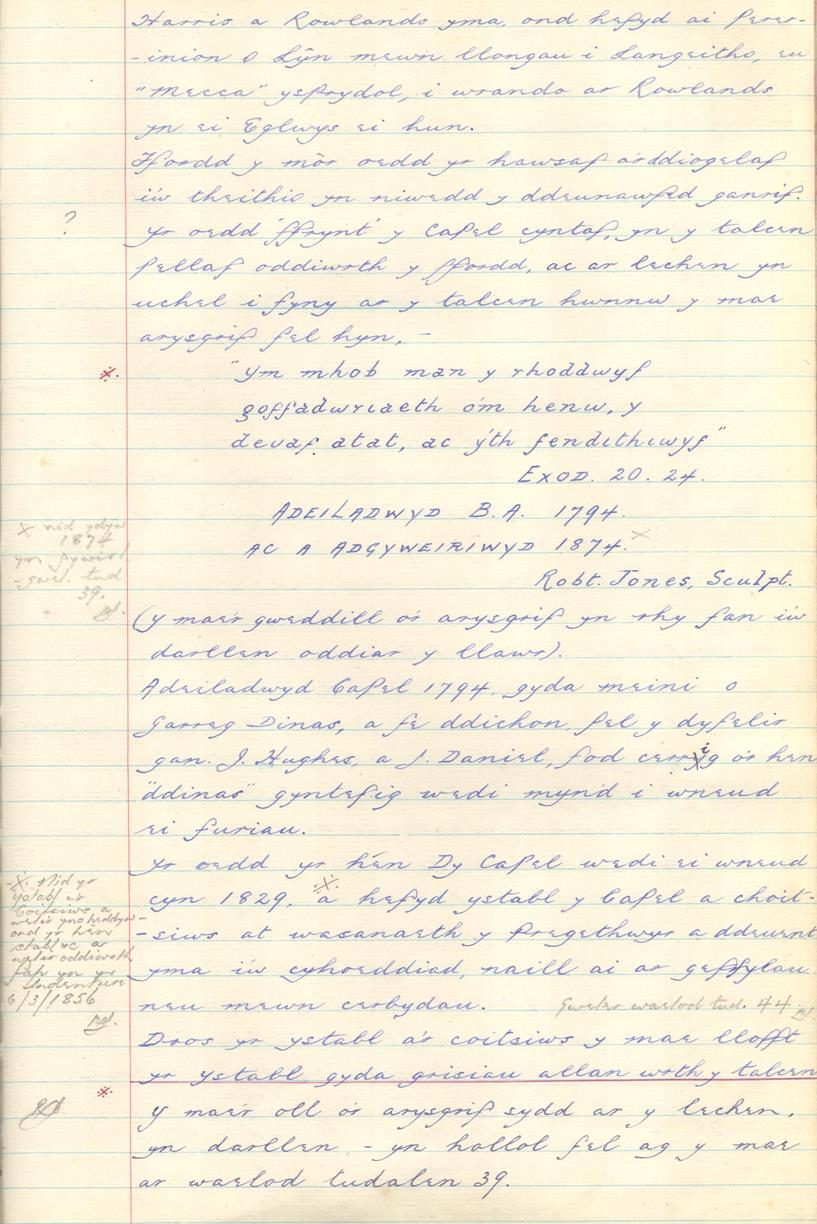 Harris a Rowlands yma, ond hefyd ai perer-
-inion o Lŷn mewn llongau i Langeitho, eu
"Mecca" ysprydol, i wrando ar Rowlands
yn ei Eglwys ei hun.
Ffordd y môr oedd yr hawsaf a'r ddiogelaf
i'w theithio yn niwedd y ddeunawfed ganrif.
?
Yr oedd 'ffrynt' y Capel cyntaf, yn y talcen
pellaf oddiwrth y ffordd, ac ar lechen yn
uchel i fyny ar y talcen hwnnw y mae
arysgrif fel hyn, -
※. "Ym mhob man y rhoddwyf
goffadwriaeth o'm henw, y
deuaf atat, ac y'th fendithiwyf"
EXOD. 20. 24.
ADEILADWYD B.A. 1794.
AC A ADGYWEIRIWYD 1874. X
Robt. Jones, Sculpt.
X nid ydyw
1874
yn gywir!
- gwel. tud
39.
(Y mae'r gweddill o'r arysgrif yn rhy fan i'w
darllen oddiar y llawr).
Adeiladwyd Capel 1794, gyda meini o
Garreg Dinas, a fe ddichon, fel y dyfelir
gan. J. Hughes, a J. Daniel, fod cerrig o'r hen
"ddinas" gyntefig wedi mynd i wneud
ei furiau.
Yr oedd yr hên Dy Capel wedi ei wneud
cyn 1829, ※ a hefyd ystabl y Capel a choit-
-siws at wasanaeth y Pregethwyr a ddeuent
yma i'w cyhoeddiad, naill ai ar geffylau
neu mewn cerbydau. Gweler waelod tud. 44
※. Nid yr
ystabl a'r
Coitsiws a
welir yno heddyw -
ond yr hên
stabl ac a
welir oddiwrth
y
Indenture
6/3/1856
Dros yr ystabl a'r coitsiws y mae llofft
yr ystabl, gyda grisiau allan wrth y talcen
※ Y mae'r oll o'r arysgrif sydd ar y lechen,
yn darllen - yn hollol fel ag y mae
ar waelod tudalen 39.